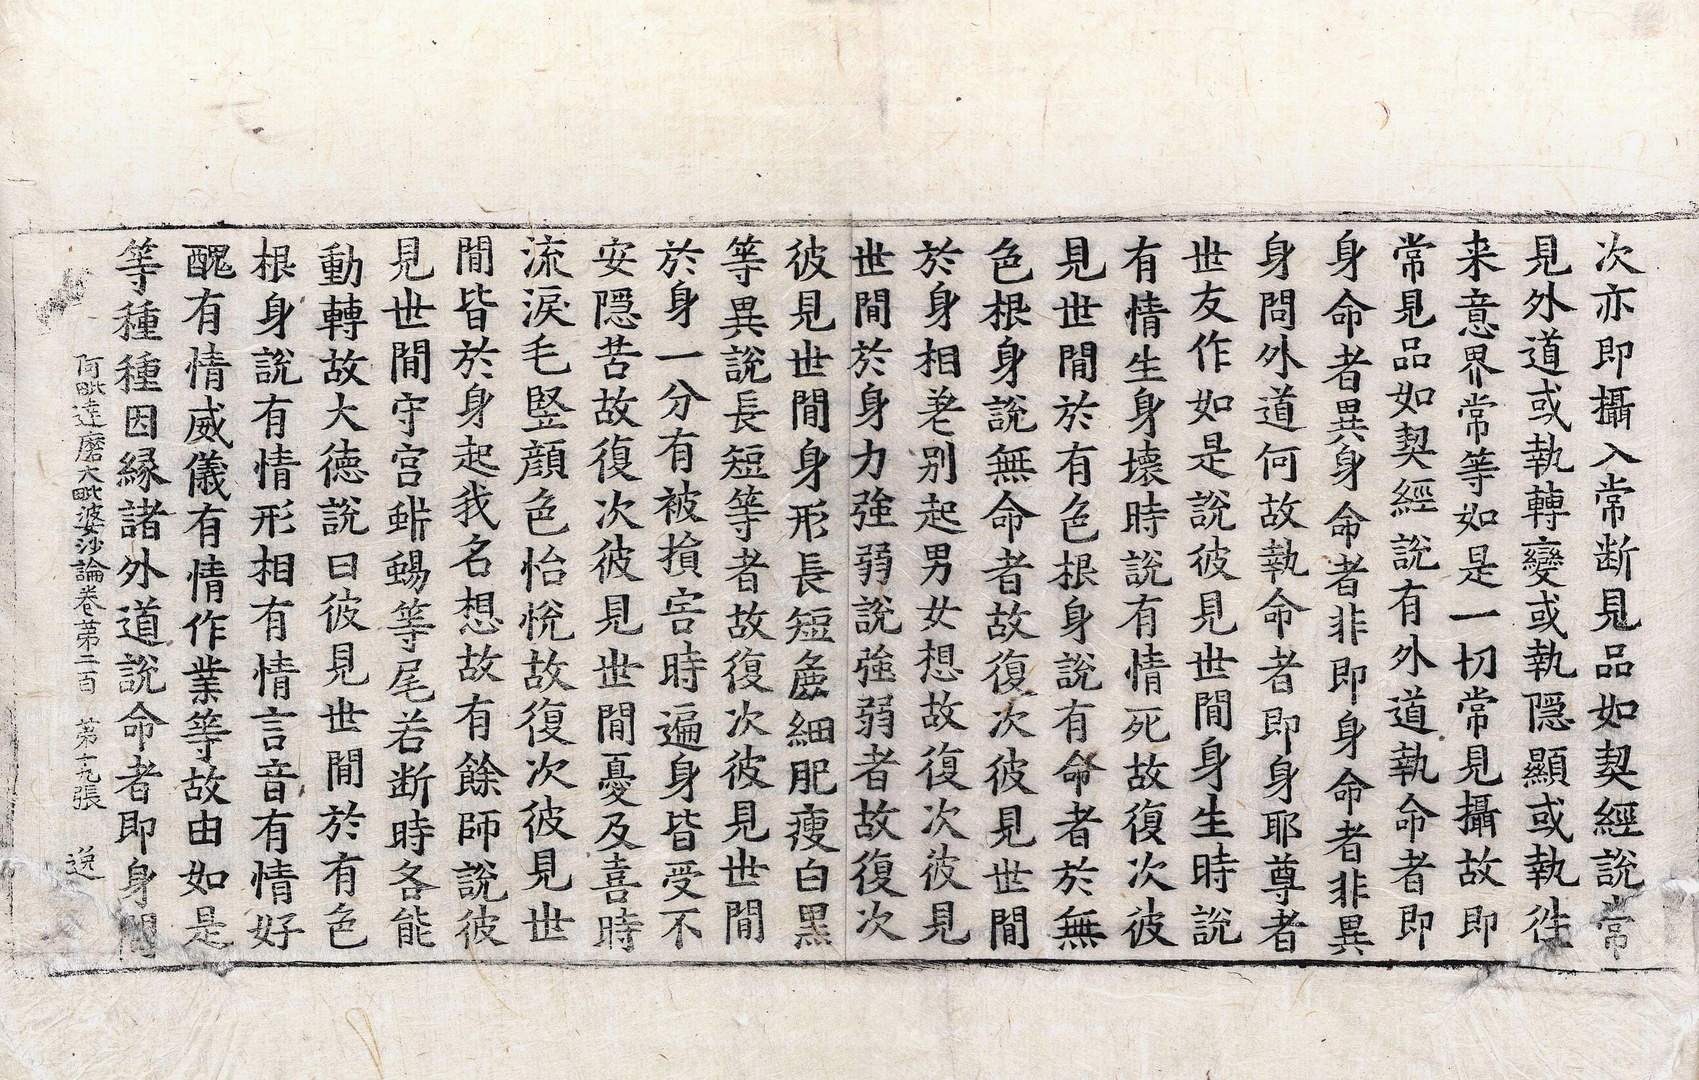 次亦即攝入常断見品如契經說常
見外道或執轉變或執隱顯或執徃
来意界常等如是一切常見攝故即
常見品如契經說有外道執命者即
身命者異身命者非即身命者非異
身問外道何故執命者即身耶尊者
世友作如是說彼見世間身生時說
有情生身壞時說有情死故復次彼
見世間於有色根身說有命者於無
色根身說無命者故復次彼見世間
於身相差別起男女想故復次彼見
世間於身力強弱說強弱者故復次
彼見世間身形長短麁細肥瘦白黑
等異說長短等者故復次彼見世間
於身一分有被損害時遍身皆受不
安隱苦故復次彼見世間憂及喜時
流淚毛竪顏色怡悅故復次彼見世
間皆於身起我名想故有餘師說彼
見世間守宮蜥蜴等尾若断時各能
動轉故大徳說曰彼見世間於有色
根身說有情形相有情言音有情好
醜有情威儀有情作業等故由如是
等種種因緣諸外道說命者即身問
阿毗達磨大毗婆沙論卷苐二百 苐十九張 逸